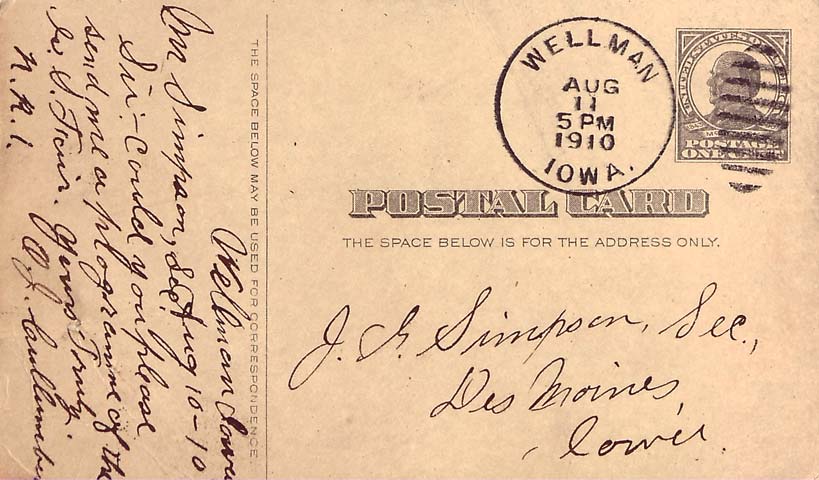 WELLMAN
AUG
11
5 PM
1910
IOWA.
UNITED STATES OF AMERICA
POSTAGE
ONE CENT
POSTAL CARD
THE SPACE BELOW IS FOR THE ADDRESS ONLY.
J. S. Simpson, Sec.,
Des Moines,
Iowa.
THE SPACE BELOW MAY BE USED FOR CORRESPONDENCE.
Wellman Iowa
Aug 10-10
Mr Simpson, Sec.
Sir:- Could you please
send me a programme of the
Ia. S. Fair. Yours Truly.
O. J.
N. R. 1.